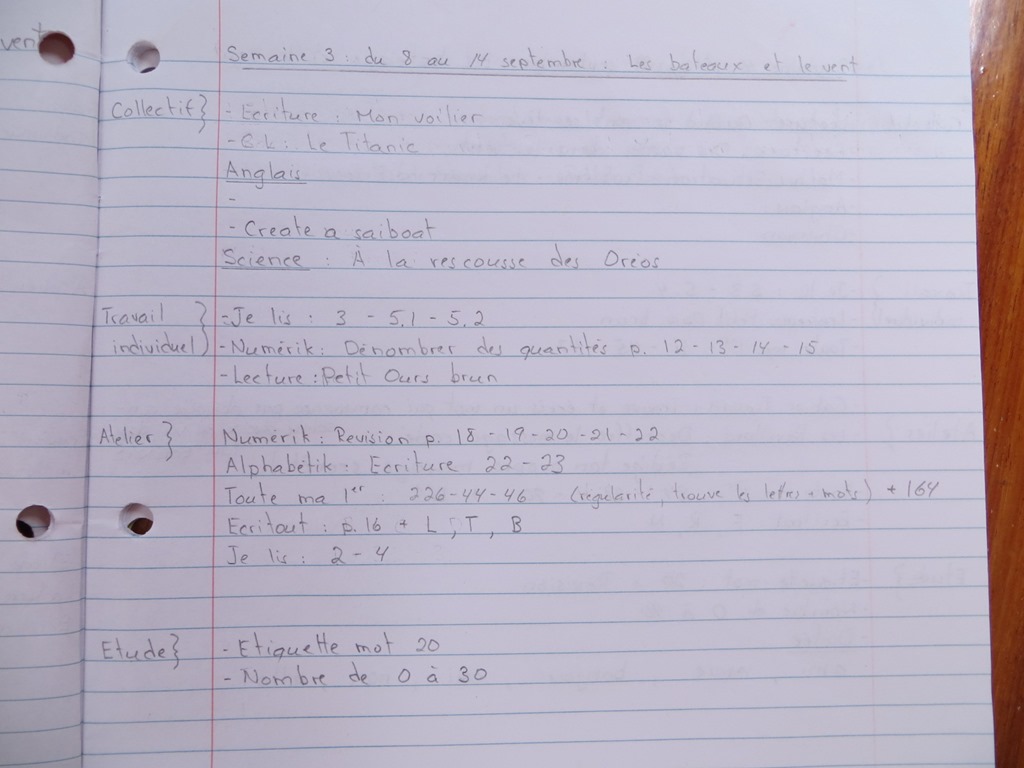 vent
Semaine 3 : du 8 au 14 septembre : Les bateaux et le vent
Collectif } - Ecriture : Mon voilier
- G.L : Le Titanic
Anglais
-
- Create a saiboat
Science : À la rescousse des Oréos
Travail individuel } - Je lis : 3 - 5.1 - 5.2
- Numérik : Dénombrer des quantités p. 12 - 13 - 14 - 15
- Lecture : Petit Ours brun
Atelier } Numérik : Revision p. 18 - 19 - 20 - 21 - 22
Alphabétik : Ecriture 22 - 23
Toute ma 1er : 226 - 44 - 46 (régularité, trouve les lettres + mots) + 164
Ecritout : p. 16 + L, T, B
Je lis : 2 - 4
Etude } - Etiquette mot 20
- Nombre de 0 à 30